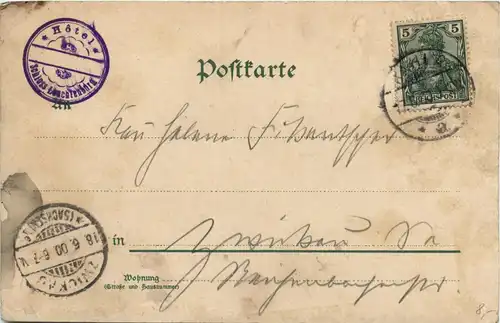 * Hôtel *
Schloss Leuchtenburg
Postkarte
5 5
REICHSPOST
An
Frau Helene
in Zwickau Sa
Wohnung
(Straße und Hausnummer)
ZWICKAU
* (SACHSEN) *
18. 6. 00. 6-7 N.
8,-